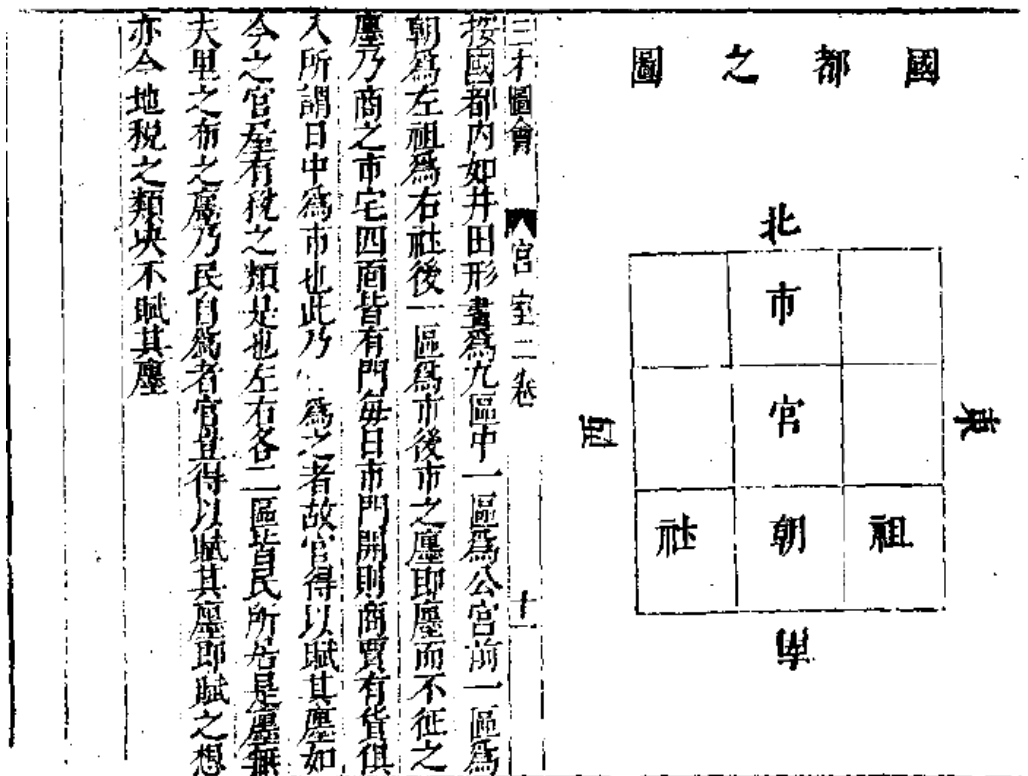 國都之圖
北
市
西
官
東
社 朝 祖
南
三才圖會 宮室二卷 十一
按國都內如井田形畫爲九區中一區爲公宮前一區爲
朝爲左祖爲右社後一區爲市後市之廛即廛而不征之
廛乃商之市宅四面皆有門每日市門開則商賈有貨俱
入所謂日中爲市也此乃爲之者故官得以賦其廛如
今之官屋有稅之類是也左右各二區皆民所居是廛無
夫里之布之廛乃民自爲者官豈得以賦其廛即賦之想
亦今地稅之類決不賦其廛